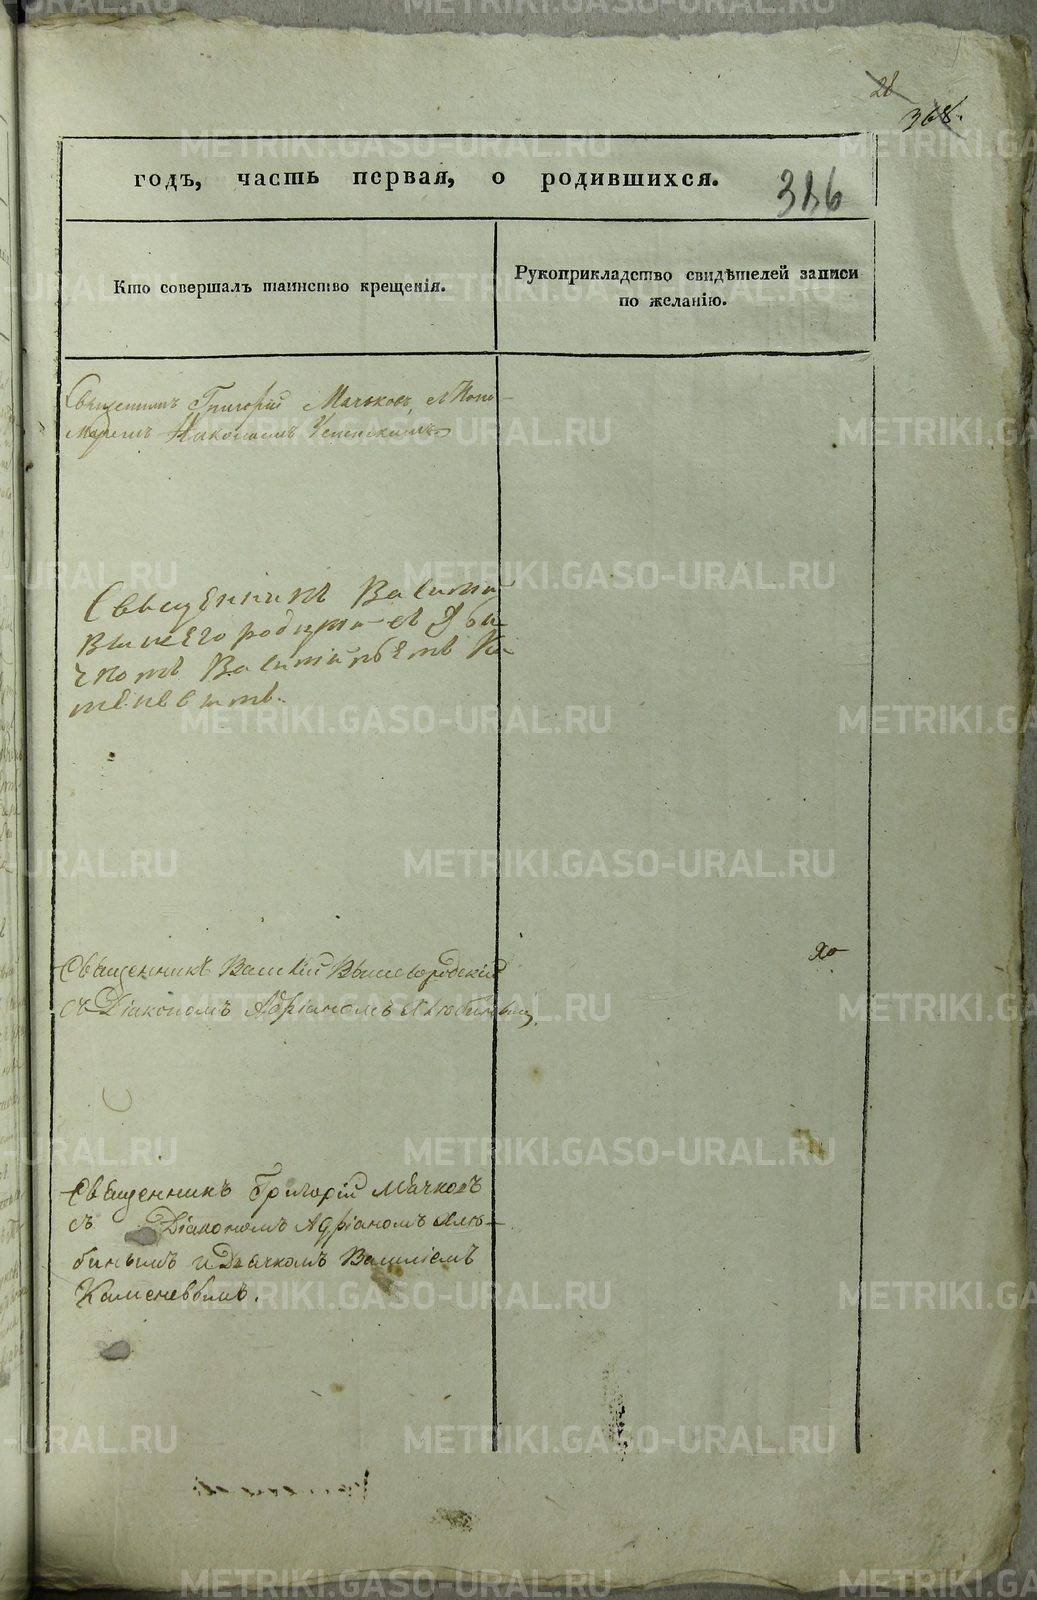 28
368.
годъ, часть первая, о родившихся.
386
Кто совершалъ таинство крещенія.
Рукоприкладство свидѣтелей записи
по желанію.
Священникъ Григорій Мачьковъ, с Поно-
маремъ Николаемъ Успенскимъ
Священникъ Василій
Вышегородски съ Дья-
чкомъ Василіемъ Ка-
меневымъ.
Священникъ Василій Вышегородскій
съ Діакономъ Адріаномъ Хлюбинымъ
Священникъ Григорій Мачковъ
съ Діакономъ Адріаномъ Хлю-
бинымъ и Дьячкомъ Василіемъ
Каменевымъ.
METRIKI.GASO-URAL.RU